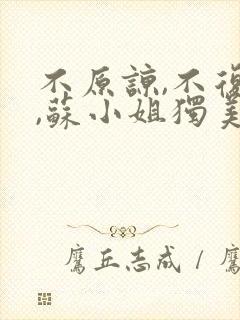 不原諒,不復
,蘇小姐獨美
鷹丘志成 / 鷹